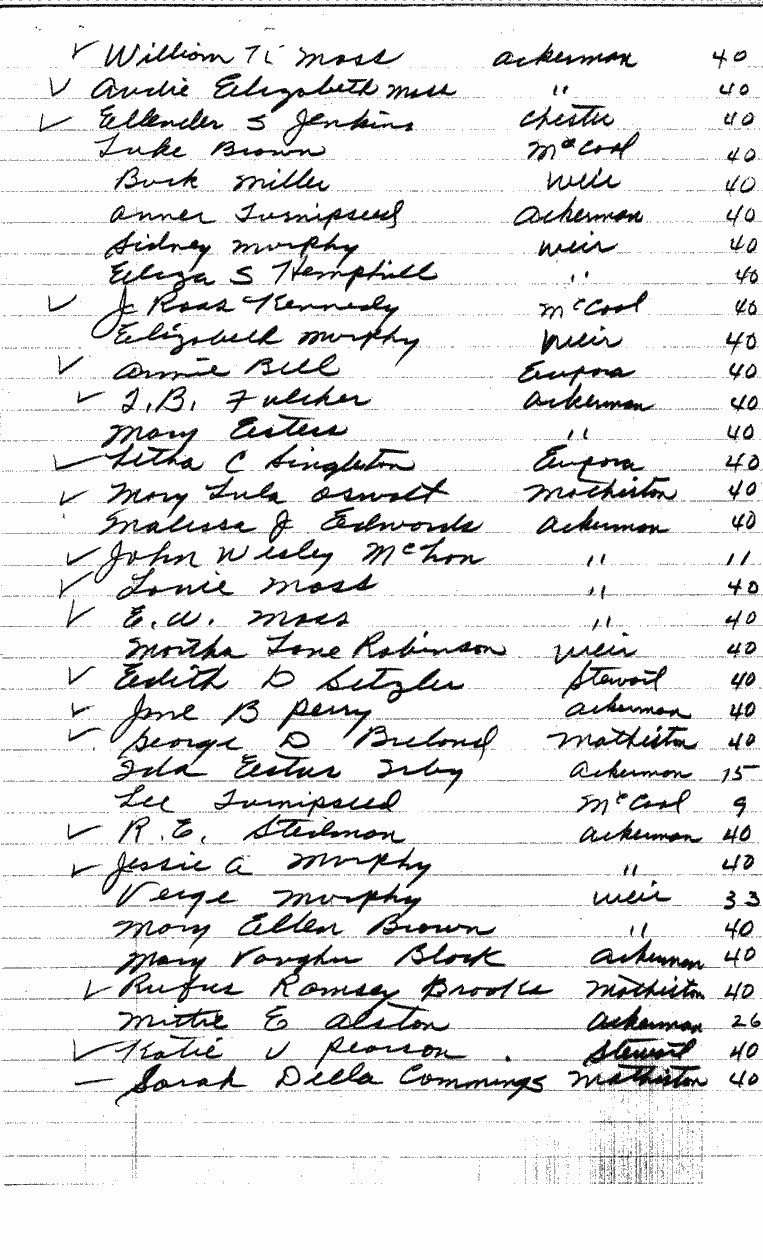 ✓ William K Moss Ackerman 40
✓ Audie Elizabeth Moss " 40
✓ Ellender S Jenkins Chester 40
Luke Brown McCool 40
Buck Miller Weir 40
Anner Turnipseed Ackerman 40
Sidney Murphy Weir 40
Eliza S Hemphill " 40
✓ J Ross Kennedy McCool 40
Elizabeth Murphy Weir 40
✓ Annie Bell Eupora 40
✓ T.B. Fulcher Ackerman 40
Mary Esters " 40
✓ Letha C Singleton Eupora 40
✓ Mary Lula Oswalt Mathiston 40
Malissa J Edwards Ackerman 40
✓ John Wesley " 11
✓ Lonie Moss " 40
✓ E.W. Moss " 40
Martha Jane Robinson Weir 40
✓ Edith D Setzler Stewart 40
✓ Jane B Perry Ackerman 40
✓ George D Breland Mathiston 40
Ida Estus Irby Ackerman 15
Lee Turnipseed McCool 9
✓ R.E. Stedman Ackerman 40
✓ Jessie A Murphy " 40
Verge Murphy Weir 33
Mary Ellen Brown " 40
Mary Vaughn Block Ackerman 40
✓ Rufus Ramsey Brooks Mathiston 40
Mittie E Alston Ackerman 26
✓ Katie V Pearson . Stewart 40
— Sarah Della Commings Mathiston 40